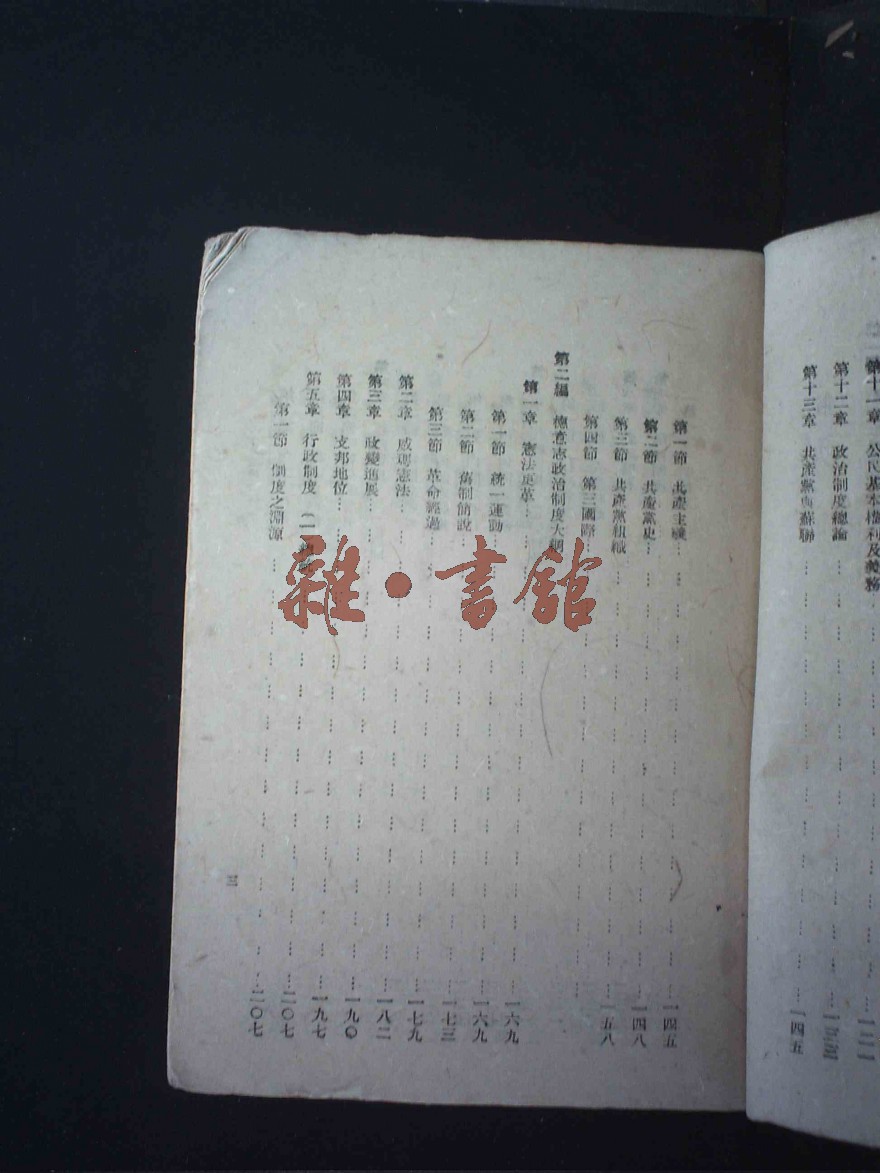 第十一章 公民基本權利及義務
第十二章 政治制度總論
第十三章 共產黨與蘇聯 一四五
第一節 共產主義 一四五
第二節 共產黨史 一四八
第三節 共產黨組織 一五八
第四節 第三國際
第二編 德意志政治制度大綱
第一章 憲法更革 一六九
第一節 統一運動 一六九
第二節 舊制簡說 一七三
第三節 革命經過 一七九
第二章 威瑪憲法 一八二
第三章 政變進展 一九〇
第四章 支邦地位 一九七
第五章 行政制度 (一) 二〇七
第一節 制度之淵源 二〇七
三
雜·書館